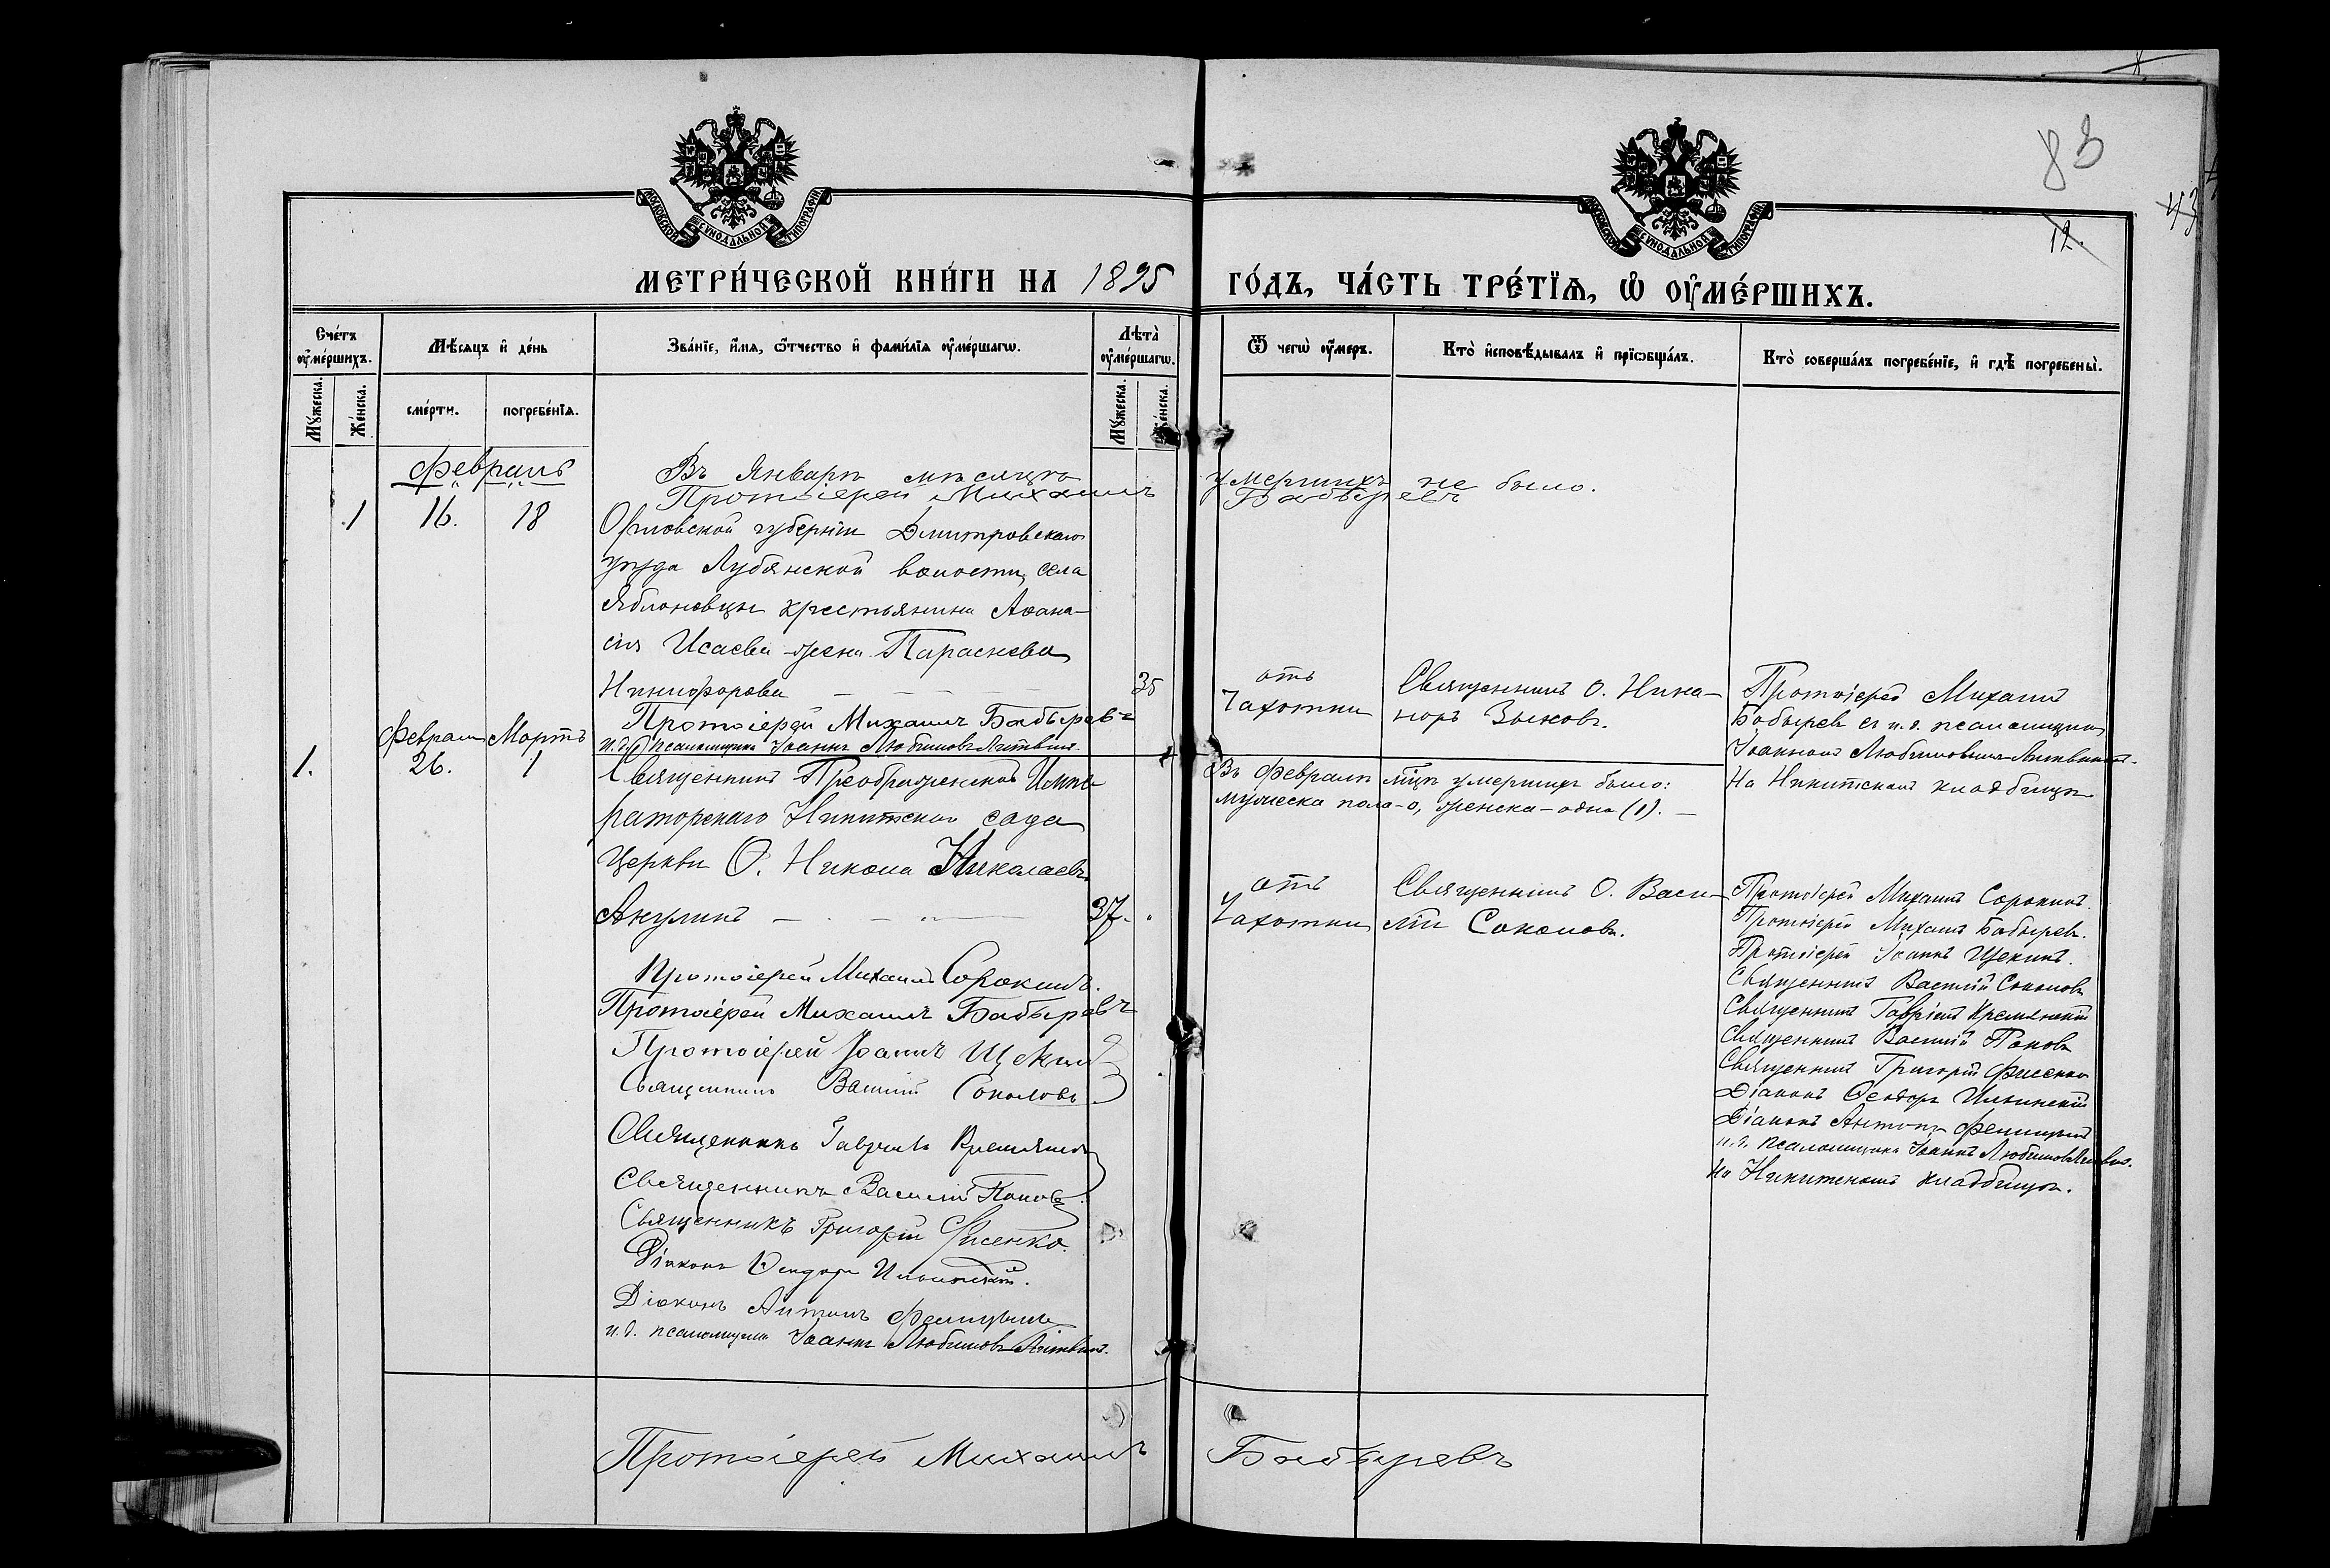 83
43
12.
МОСКОВСКОЙ СѴНОДАЛЬНОЙ ТИПОГРАФІИ
МОСКОВСКОЙ СѴНОДАЛЬНОЙ ТИПОГРАФІИ
МЕТРИ́ЧЕСКОЙ КНИ́ГИ НА 1895 ГО́ДЪ, ЧА́СТЬ ТРЕ́ТЇѦ, Ѡ҆ ОУ҆МЕ́РШИХЪ.
Сче́тъ оу҆ме́ршихъ.
Мѣ́сѧцъ и҆ де́нь
Зва́нїе, и҆́мѧ, ѻ҆́тчество и҆ фами́лїѧ оу҆ме́ршагѡ.
Лѣта̀ оу҆ме́ршагѡ.
Ѿ чегѡ̀ оу҆́меръ.
Кто̀ и҆сповѣ́дывалъ и҆ прїѡбща́лъ.
Кто̀ соверша́лъ погребе́нїе, и҆ гдѣ̀ погребены̀.
Мꙋ́жеска.
Же́нска.
сме́рти.
погребе́нїѧ.
Мꙋ́жеска.
Же́нска.
Февраль
Въ Январѣ мѣсяцѣ умершихъ не было.
Протоіерей Михаилъ Бабыревъ
1 16. 18
Орловской губерніи Дмитровскаго
уѣзда Лубянской волости, села
Яблоновцы крестьянина Аѳана-
сія Исаева жена Параскева
Никифорова 35
отъ
Чахотки
Священникъ О. Ника-
норъ Зыковъ.
Протоіерей Михаилъ
Бабыревъ съ и.д. псаломщика
Іоанномъ Любимовымъ-Литвинъ.
На Никитскомъ кладбищѣ
Протоіерей Михаилъ Бабыревъ
и.д. псаломщика Іоаннъ Любимовъ Литвинъ.
Въ Февралѣ мцѣ умершихъ было:
мужеска пола-0, женска-одна (1).
Февраль Мартъ
1. 26. 1
Священникъ Преображенской Импе-
раторскаго Никитскаго сада
церкви О. Никола Николаевъ
Акулинъ 37.
отъ
Чахотки
Священникъ О. Васи-
лій Соколовъ.
Протоіерей Михаилъ Сорокинъ.
Протоіерей Михаилъ Бабыревъ.
Протоіерей Іоаннъ Щекинъ.
Священникъ Василій Соколовъ
Священникъ Гавріилъ Кремянскій
Священникъ Василій Поповъ
Священникъ Григорій Фисенко
Діаконъ Ѳеодоръ Ильинскій
Діаконъ Антонъ
и.д. псаломщика Іоаннъ Любимовъ Литвин.
На Никитскомъ кладбищѣ.
Протоіерей Михаилъ Сорокинъ.
Протоіерей Михаилъ Бабыревъ
Протоіерей Іоаннъ Щекинъ
Священникъ Василій Соколовъ
Священникъ Гавріилъ Кремянскій
Священникъ Василій Поповъ.
Священникъ Григорій Фисенко.
Діаконъ Ѳеодоръ Ильинскій.
Діаконъ Антонъ
и.д. псаломщика Іоаннъ Любимовъ Литвинъ.
Протоіерей Михаилъ Бабыревъ